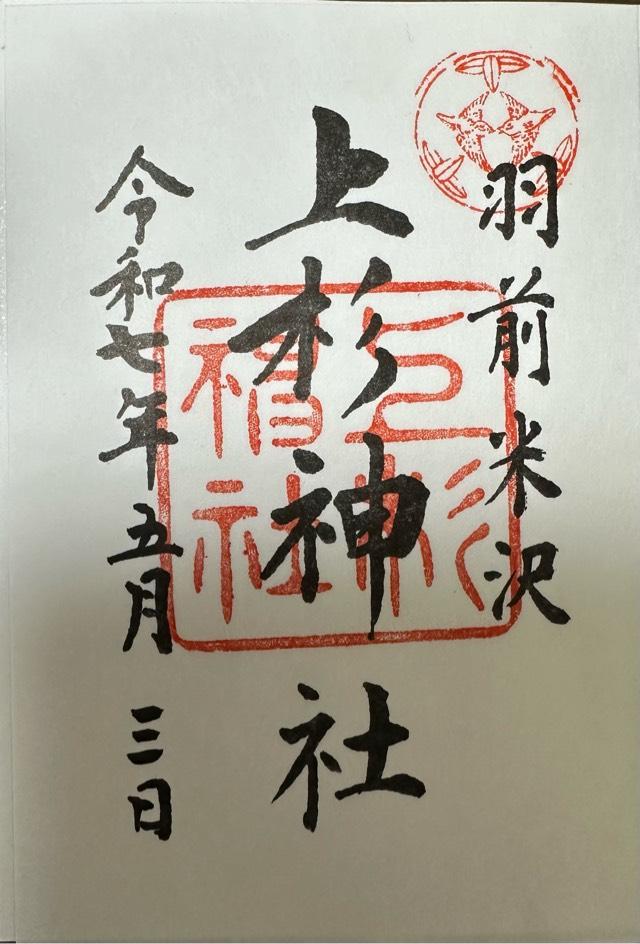 羽前米沢
上杉神社
令和七年五月三日
上杉神社